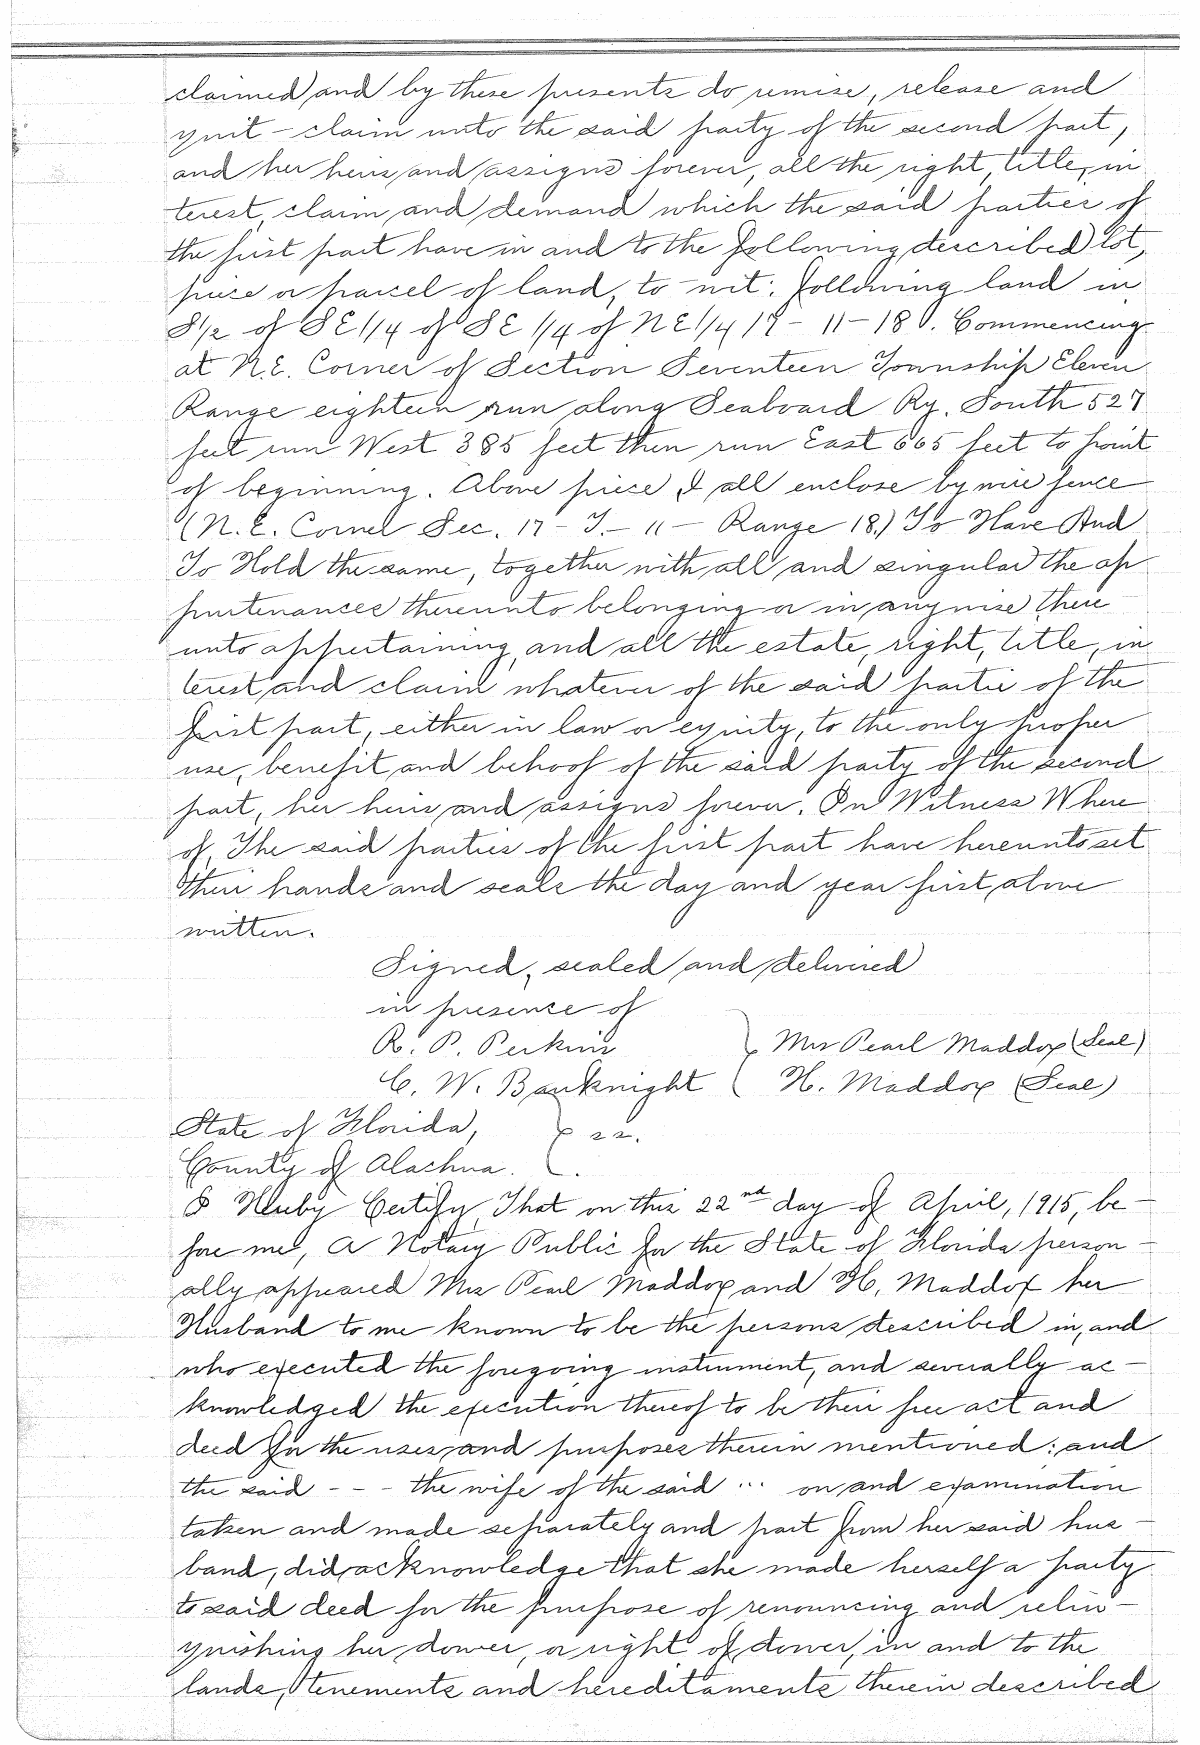 claimed and by these presents do remise, release and
quit - claim unto the said party of the second part,
and her heirs and assigns forever, all the right, title, in
terest, claim and demand which the said parties of
the first part have in and to the following described lot,
piece or parcel of land, to wit: following land in
S1/2 of SE1/4 of SE 1/4 of NE1/4 17 - 11 - 18. Commencing
at N.E. Corner of Section Seventeen Township Eleven
Range eighteen run along Seaboard Ry. South 527
feet run West 385 feet then run East 665 feet to point
of beginning. Above piece I all enclose by wire fence
(N.E. Corner Sec. 17 - T - 11 - Range 18.) To Have And
To Hold the same, together with all and singular the ap
purtenances thereunto belonging or in anywise there
unto appertaining, and all the estate, right, title, in
terest and claim whatever of the said partie of the
first part, either in law or equity, to the only proper
use, benefit and behoof of the said party of the second
part, her heirs and assigns forever. In Witness Where
of, The said parties of the first part have hereunto set
their hands and seals the day and year first above
written.
Signed, sealed and delivered
in presence of
R. P. Perkins } Mrs Pearl Maddox (Seal)
C. W. Bauknight ( H. Maddox (Seal)
State of Florida, } ss.
County of Alachua.
I Hereby Certify, That on this 22nd day of April, 1915, be-
fore me, A Notary Public for the State of Florida person-
ally appeared Mrs Pearl Maddox and H. Maddox her
Husband to me known to be the persons described in, and
who executed the foregoing instrument, and severally ac-
knowledged the execution thereof to be their free act and
deed for the uses and purposes therein mentioned; and
the said - - - the wife of the said ... on and examination
taken and made separately and part from her said hus-
band, did acknowledge that she made herself a party
to said deed for the purpose of renouncing and relin-
quishing her dower, or right of dower, in and to the
lands, tenements and hereditaments therein described